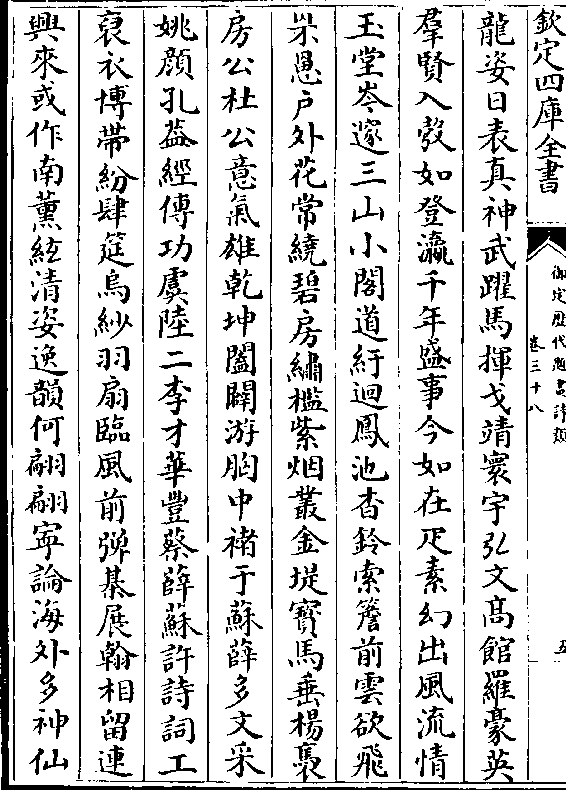 欽定四庫全書
御定歴代題畫詩類
卷三十八
五
龍姿日表真神武躍馬揮戈靖寰宇弘文髙館羅豪英
羣賢入彀如登瀛千年盛事今如在疋素幻出風流情
玉堂岑邃三山小閣道紆迴鳳池杳鈴索簷前雲欲飛
罘罳户外花常繞碧房繡檻紫烟叢金堤寳馬垂楊褭
房公杜公意氣雄乾坤闔闢游胸中褚于蘇薛多文采
姚顔孔葢經傳功虞陸二李才華豐蔡薛蘇許詩詞工
裒衣博帶紛肆筵烏紗羽扇臨風前彈棊展翰相留連
興來或作南薰絃清姿逸韻何翩翩寜論海外多神仙